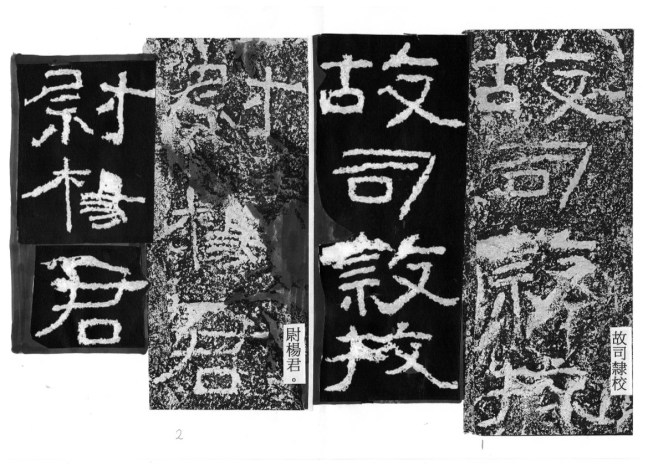 故司隸校
故司隸校
故司隸校
1
尉楊君
尉楊君。
尉楊君
2